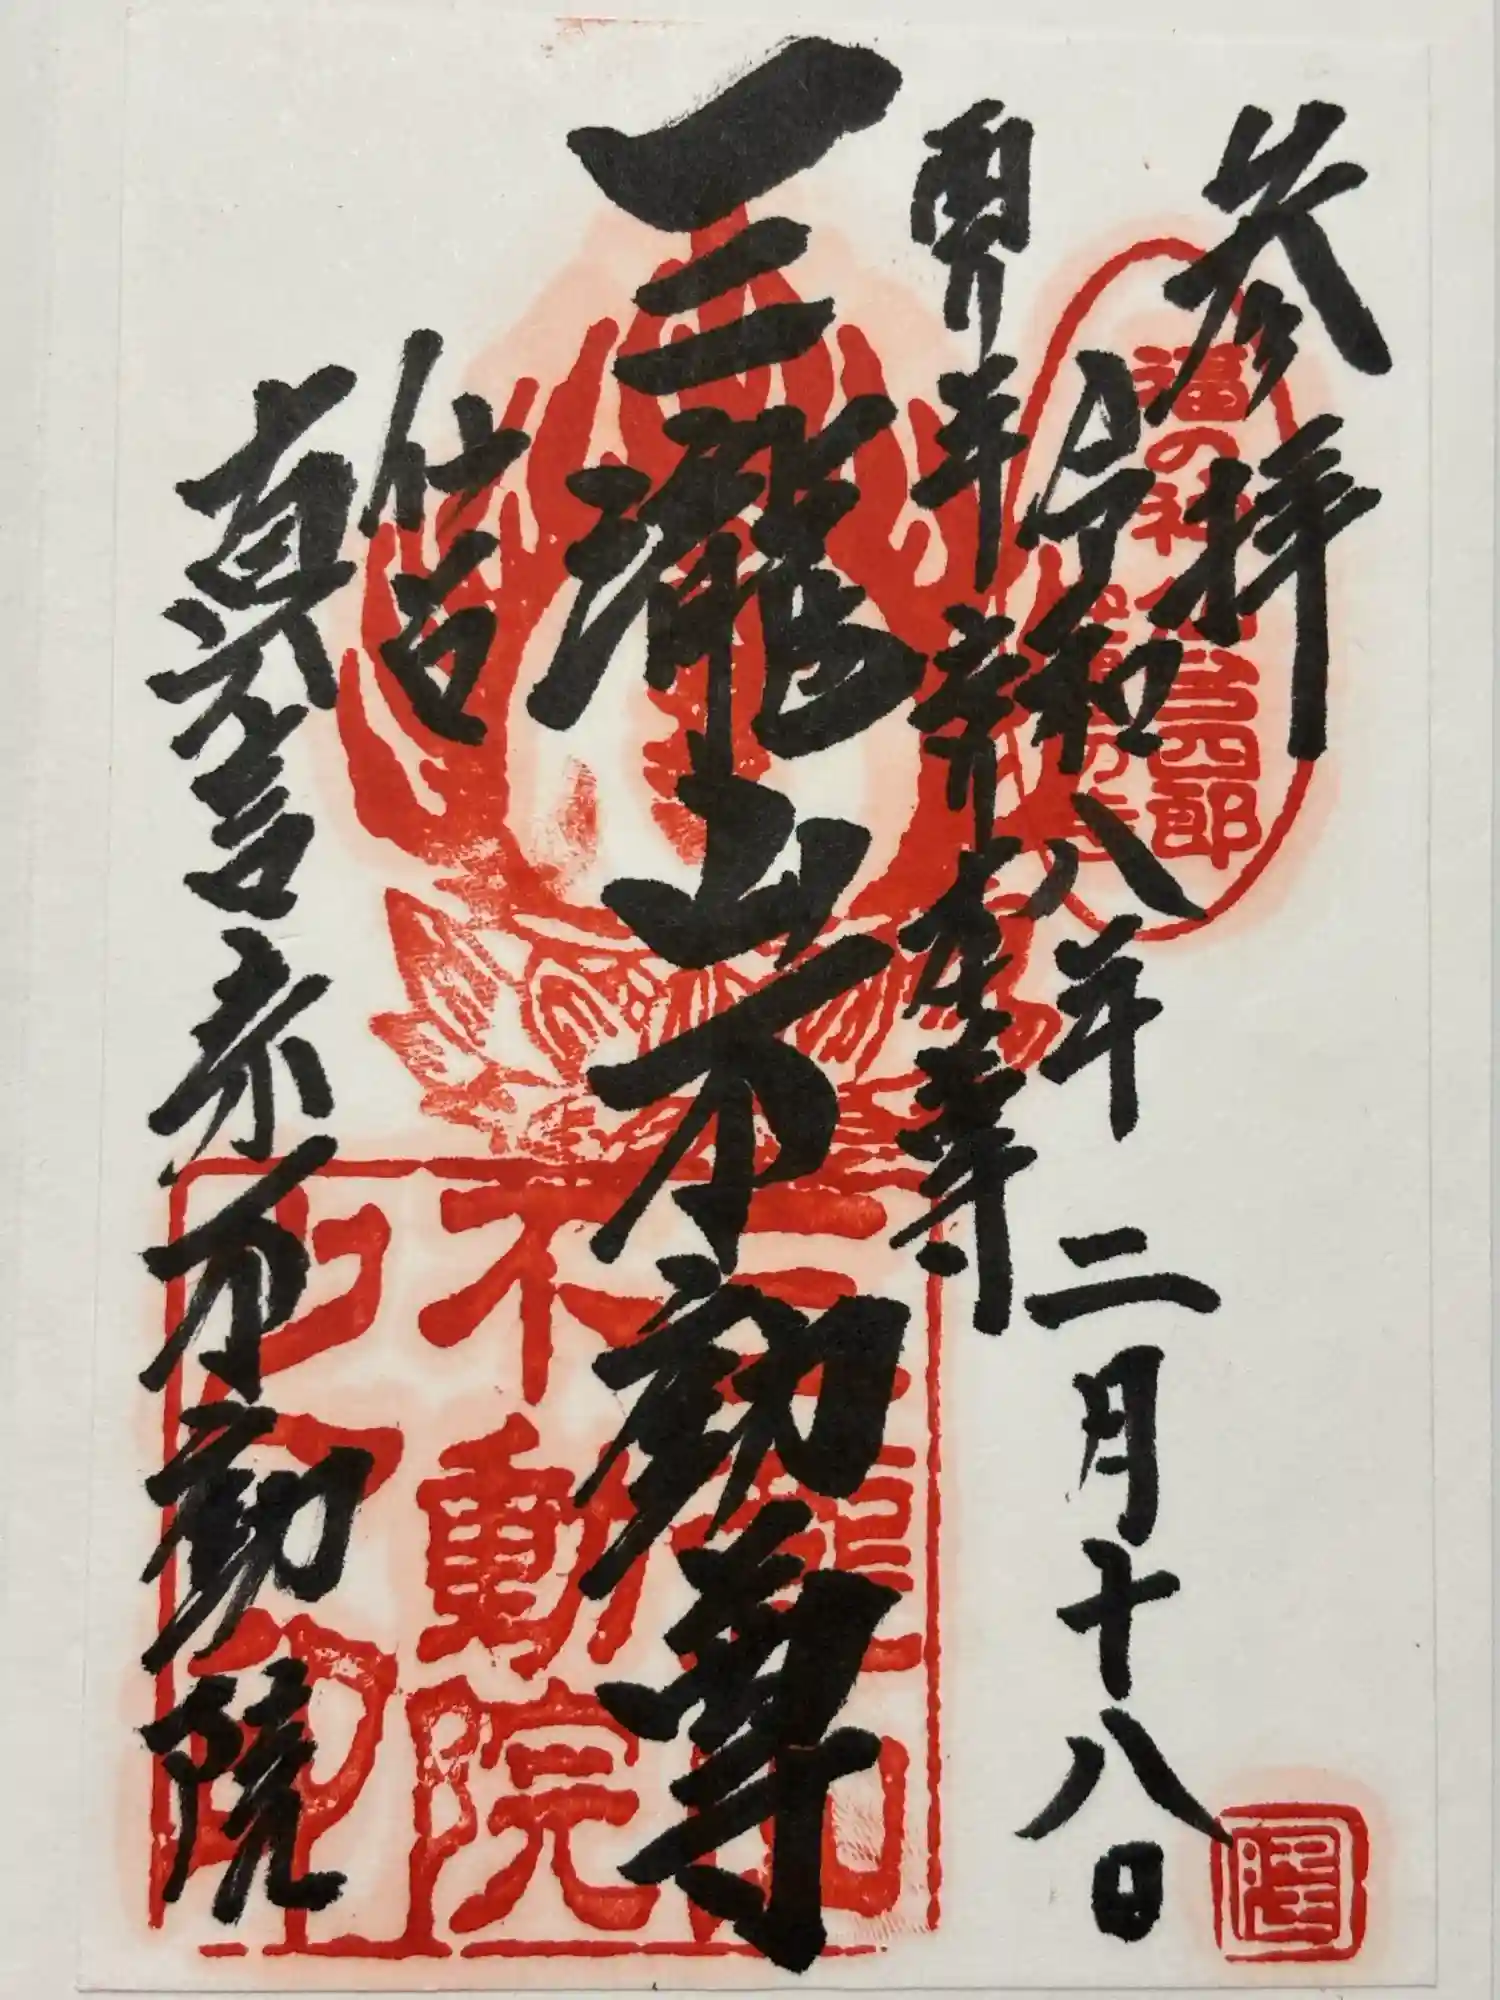 参拝
令和八年 二月十八日
三瀧山不動尊
仙台
真言宗不動院
福の神 仙台四郎
三瀧山
不動院
之印